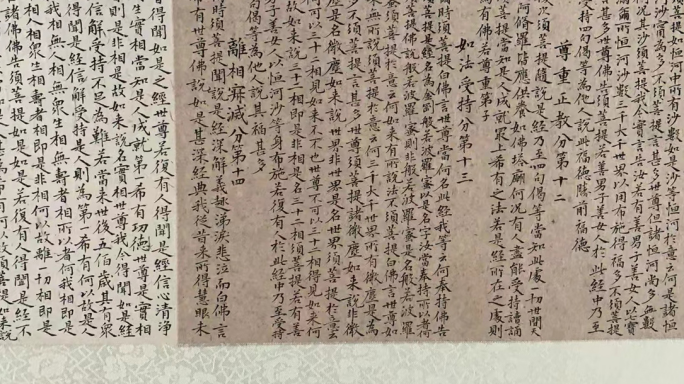 河中所有沙數如是沙等恒河於意云何是諸恒
沙寧為多不須菩提言甚多世尊但諸恒河尚多無數
何況其沙須菩提我今實言告汝若有善男子善女人以七寶
滿爾所恒河沙數三千大千世界以用布施得福多不須菩提
甚多世尊佛告須菩提若善男子善女人於此經中乃至
受持四句偈等為他人說而此福德勝前福德
尊重正教分第十二
復次須菩提隨說是經乃至四句偈等當知此處一切世間天
阿修羅皆應供養如佛塔廟何況有人盡能受持讀誦
須菩提當知是人成就最上第一希有之法若是經所在之處則
為有佛若尊重弟子
如法受持分第十三
爾時須菩提白佛言世尊當何名此經我等云何奉持佛告
須菩提是經名為金剛般若波羅蜜以是名字汝當奉持所以者何
須菩提佛說般若波羅蜜則非般若波羅蜜是名般若波羅
蜜須菩提於意云何如來有所說法不須菩提白佛言世尊如
來無所說須菩提於意云何三千大千世界所有微塵是為
多不須菩提言甚多世尊須菩提諸微塵如來說非微
塵是名微塵如來說世界非世界是名世界須菩提於意云
何可以三十二相見如來不不也世尊不可以三十二相得見如來何
以故如來說三十二相即是非相是名三十二相須菩提若有善
男子善女人以恒河沙等身布施若復有人於此經中乃至受持
四句偈等為他人說其福甚多
離相寂滅分第十四
爾時須菩提聞說是經深解義趣涕淚悲泣而白佛言
希有世尊佛說如是甚深經典我從昔來所得慧眼未
曾得聞如是之經世尊若復有人得聞是經信心清淨
則生實相當知是人成就第一希有功德世尊是實相
者則是非相是故如來說名實相世尊我今得聞如是經
典信解受持不足為難若當來世後五百歲其有眾
生得聞是經信解受持是人則為第一希有何以故是人
無我相無人相無眾生相無壽者相所以者何我相即是非
相人相眾生相壽者相即是非相何以故離一切相即是
諸佛佛告須菩提如是如是若復有人得聞是經不